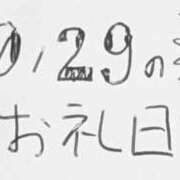 0/29の
お礼日